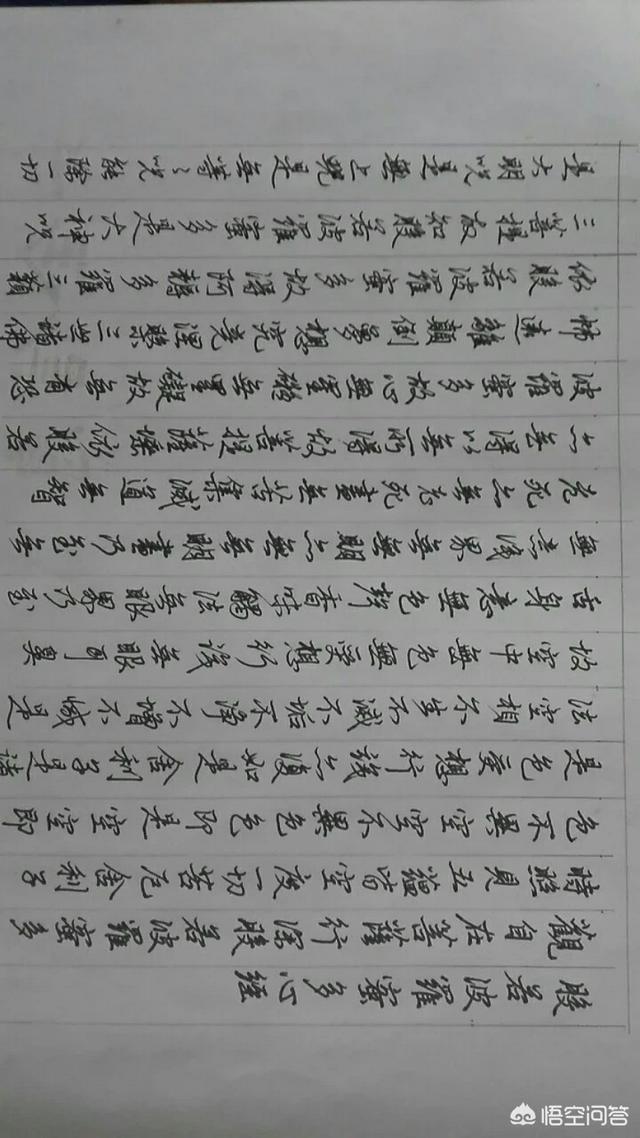 般若波羅蜜多心經
觀自在菩薩行深般若波羅蜜多
時照見五蘊皆空度一切苦厄舍利子
色不異空空不異色色即是空空即
是色受想行識亦復如是舍利子是諸
法空相不生不滅不垢不淨不增不減是
故空中無色無受想行識無眼耳鼻
舌身意無色聲香味觸法無眼界乃至
無意識界無無明亦無無明盡乃至無
老死亦無老死盡無苦集滅道無智
亦無得以無所得故菩提薩埵依般若
波羅蜜多故心無罣礙無罣礙故無有恐
怖遠離顛倒夢想究竟涅槃三世諸佛
依般若波羅蜜多故得阿耨多羅三藐
三菩提故知般若波羅蜜多是大神咒
是大明咒是無上咒是無等々咒能除一切
悟空问答